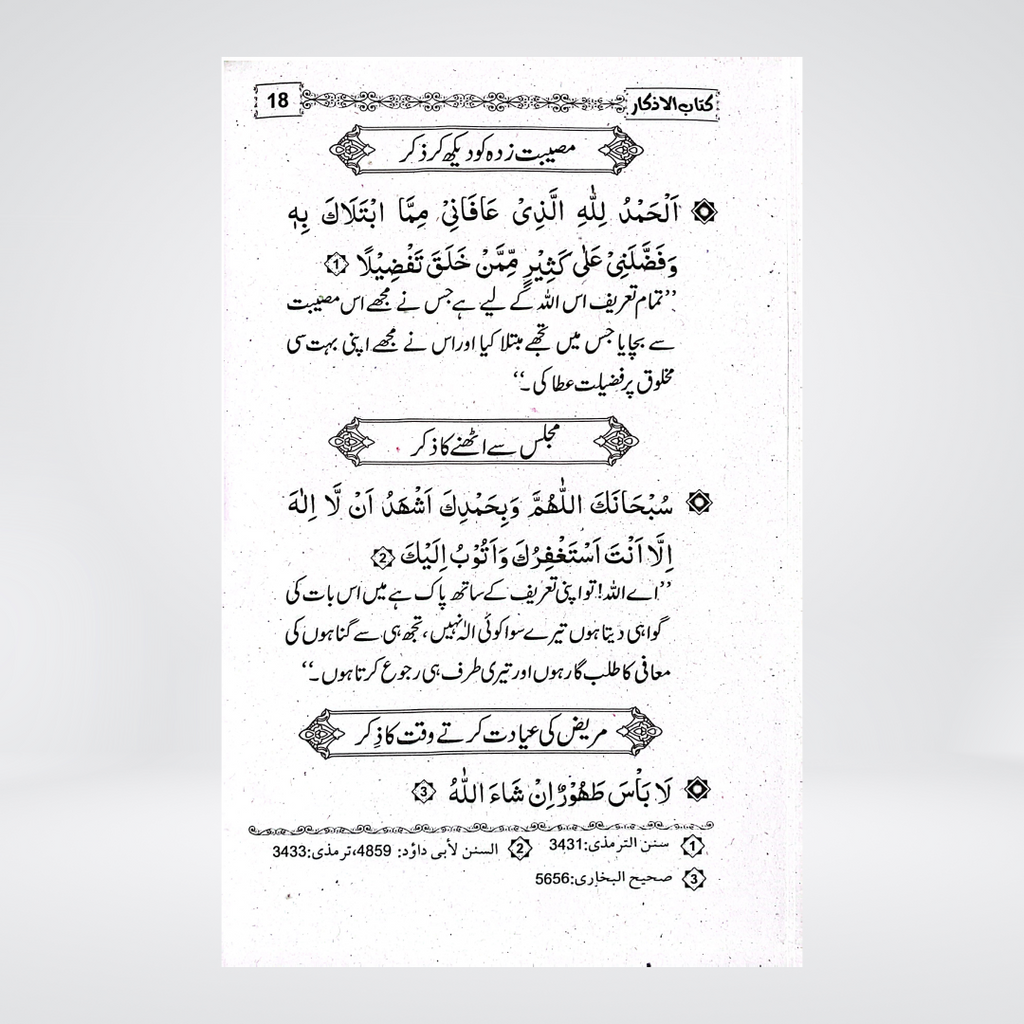 كتاب الاذكار 18
مصیبت زدہ کو دیکھ کر ذکر
اَلْحَمْدُ لِلّٰهِ الَّذِىْ عَافَانِىْ مِمَّا ابْتَلَاكَ بِهٖ
وَفَضَّلَنِىْ عَلٰى كَثِيْرٍ مِّمَّنْ خَلَقَ تَفْضِيْلًا 1
’’تمام تعریف اس اللہ کے لیے ہے جس نے مجھے اس مصیبت
سے بچایا جس میں تجھے مبتلا کیا اور اس نے مجھے اپنی بہت سی
مخلوق پر فضیلت عطا کی۔‘‘
مجلس سے اٹھنے کا ذکر
سُبْحَانَكَ اللّٰهُمَّ وَبِحَمْدِكَ اَشْهَدُ اَنْ لَّا اِلٰهَ
اِلَّا اَنْتَ اَسْتَغْفِرُكَ وَاَتُوْبُ اِلَيْكَ 2
’’اے اللہ! تو اپنی تعریف کے ساتھ پاک ہے میں اس بات کی
گواہی دیتا ہوں تیرے سوا کوئی الٰہ نہیں، تجھ ہی سے گناہوں کی
معافی کا طلب گار ہوں اور تیری طرف ہی رجوع کرتا ہوں۔‘‘
مریض کی عیادت کرتے وقت کا ذِکر
لَا بَاْسَ طَهُوْرٌ اِنْ شَاءَ اللّٰهُ 3
1 سنن الترمذى:3431 2 السنن لأبى داؤد: 4859،ترمذى:3433
3 صحيح البخارى:5656